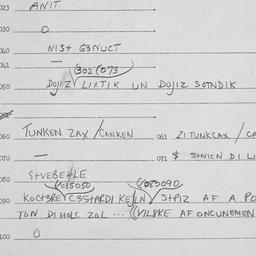 023 ANIT
030 O
040 NIST G3NUCT
041 —
(302 (073
050 DOJIZ LIXTIK UN DOJIZ SOTNDIK
060 TUNKEN ZAX / CANKEN 061 ZITUNKCAX / CA
070 — 071 $ STNICN DI LI
080 STVEBEHLE
(085050 (085090
090 KOCT3RE C3STARDI KE STPIZ AF A PO
TON DI HOLC ZOL ... VILSKE AF ONCUNEMEN
100 O